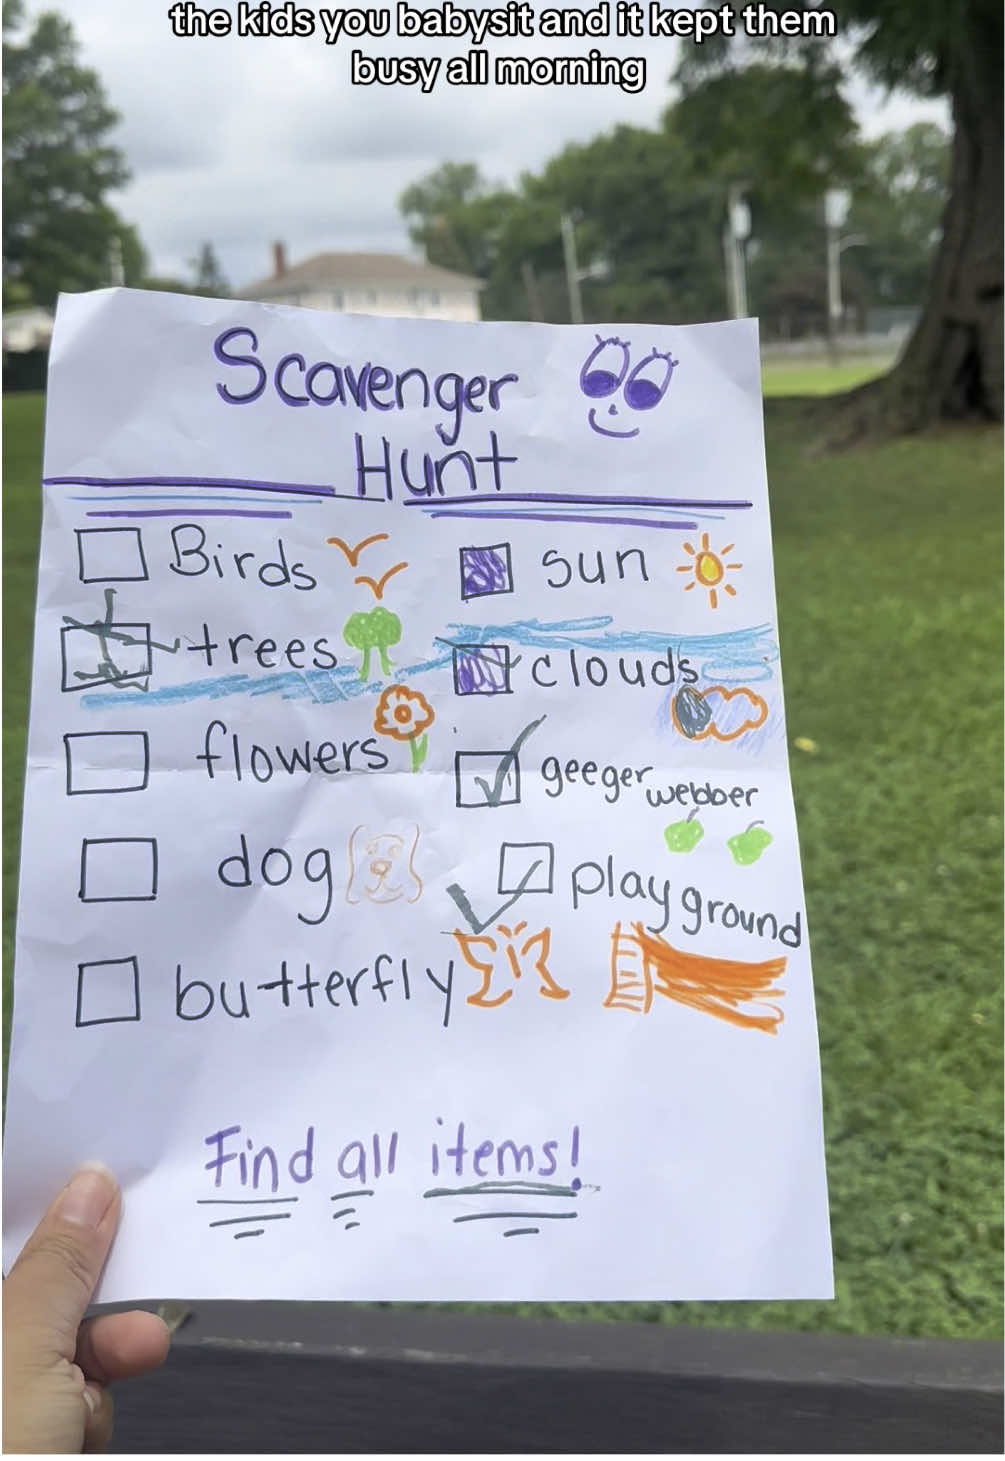 the kids you babysit and it kept them
busy all morning
Scavenger
Hunt
Birds
trees
flowers
dog
butterfly
sun
clouds
geeger webber
playground
Find all items!